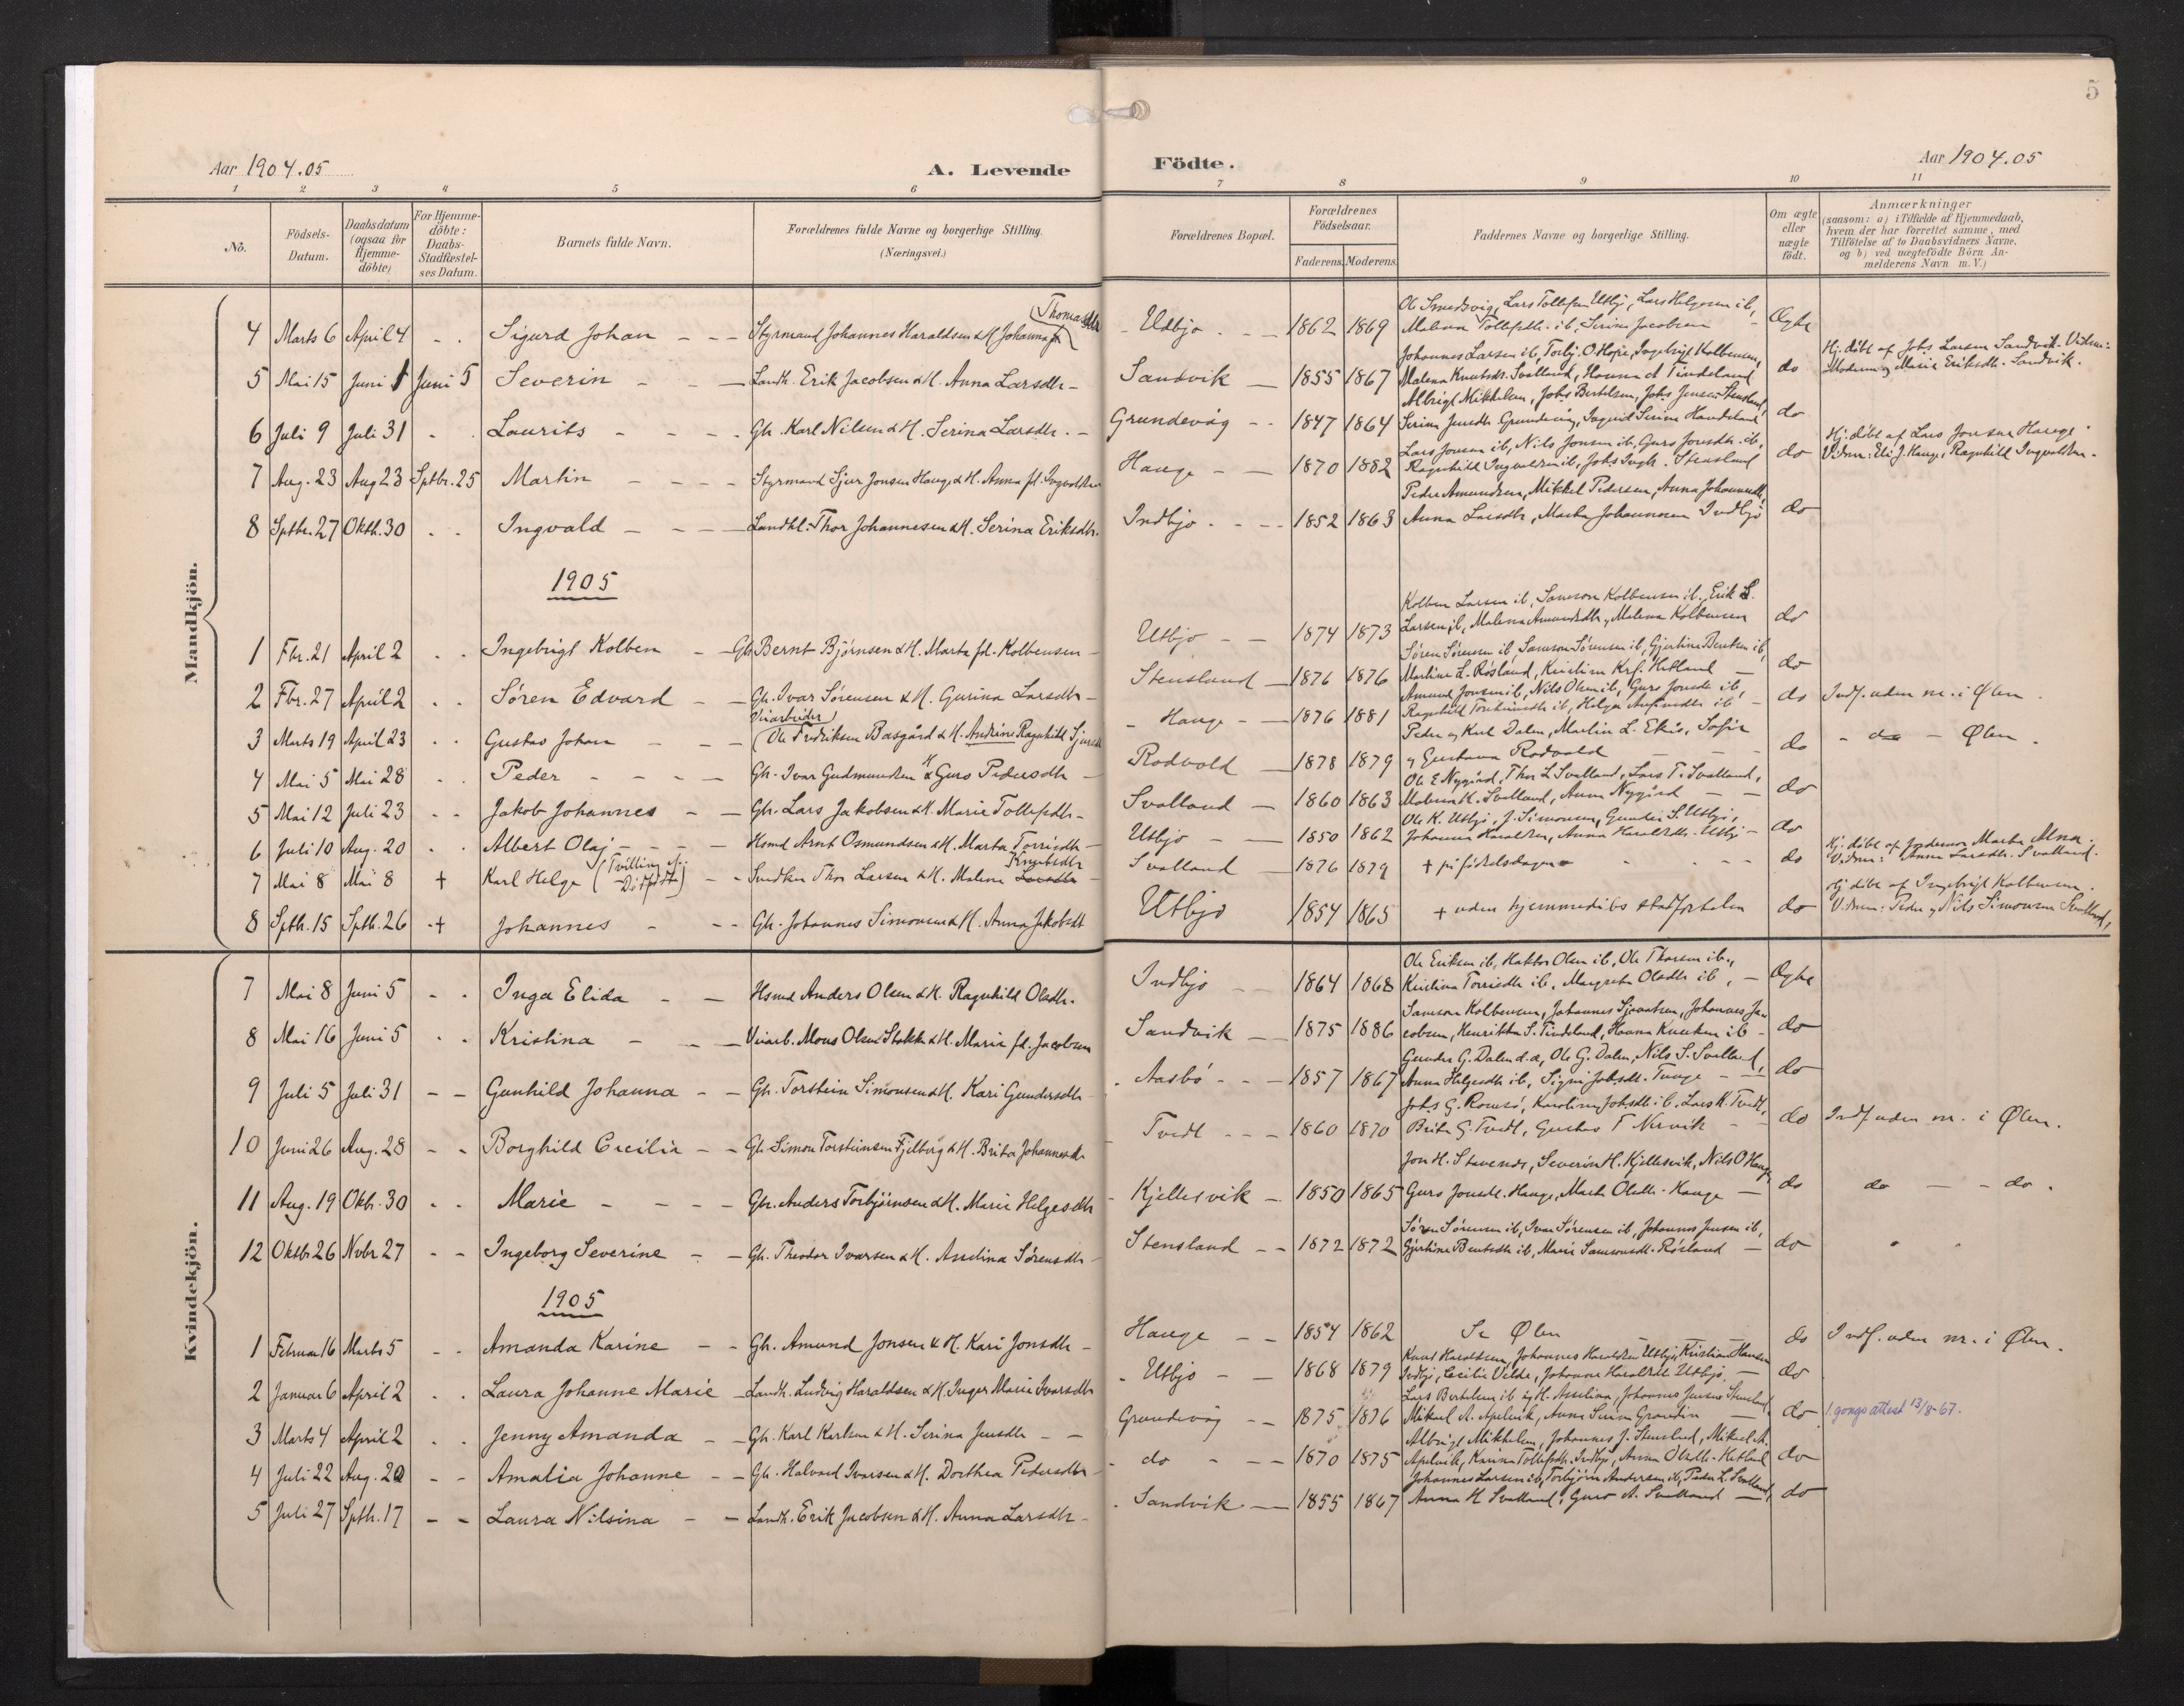 5
Aar 1904.05
A. Levende
Födte.
Aar 1904.05
1 2 3 4 5 6 7 8 9 10 11
No.
Födsels-Datum.
Daabsdatum (ogsaa for Hjemme-döbte)
For Hjemme-döbte: Daabs-Stadfæstel-ses Datum.
Barnets fulde Navn.
Forældrenes fulde Navne og borgerlige Stilling. (Næringsvei.)
Forældrenes Bopæl.
Forældrenes Födselsaar.
Faderens. Moderens.
Faddernes Navne og borgerlige Stilling.
Om ægte eller uægte födt.
Anmærkninger
(saasom: a) i Tilfælde af Hjemmedaab,
hvem der har forrettet samme, med
Tilföielse af to Daabsvidners Navne,
og b) ved uægtefödte Börn An-
melderens Navn m. V.)
Mandkjön.
4 Marts 6 April 4 Sigurd Johan Styrmand Johannes Haraldsen & H. Johanna Thomasdtr Udbjo 1862 1869 Ole Smedsvig, Lars Tollefsen Utbjo, Lars Helgesen ib, Malena Tollefsdtr. ib, Serina Jacobsen Ægte
5 Mai 15 Juni 1 Juni 5 Severin Landh. Erik Jacobsen & H. Anna Larsdtr Sandvik 1855 1867 Johannes Larsen ib, Torbj. O. Høie, Ingebrigt Kolbensen, Malena Knutsdtr. Svalland, Hanna A Tindeland do Hj. døbt af Johs Larsen Sandvik. Vidner: Moderen og Marie Eriksdtr. Sandvik.
6 Juli 9 Juli 31 Laurits Gbr. Karl Nilsen & H. Serina Larsdtr. Grundevåg 1847 1864 Albrigt Mikkelsen, Johs Bertelsen, Johs Jensen Stensland, Serina Jensdtr Grundevåg, Ingrid Serina Handeland do
7 Aug. 23 Aug 23 Septbr. 25 Martin Styrmand Sjur Jonsen Hauge & H. Anna fd. Ingvaldsen Hauge 1870 1882 Lars Jonsen ib, Nils Jonsen ib, Guro Jonsdtr. ib, Ragnhild Ingvaldsen ib, Johs Ingb. Stensland do Hj. døbt af Lars Jonsen Hauge. Vidner: Eli J. Hauge, Ragnhild Ingvaldsen.
8 Septbr. 27 Oktb. 30 Ingvald Landhl. Thor Johannesen & H. Serina Eriksdtr. Indbjo 1852 1863 Peder Amundsen, Mikkel Pedersen, Anna Johannesdtr, Anna Larsdtr, Marta Johannesen Indbjo do
1905
1 Fbr. 21 April 2 Ingebrigt Kolben Gb Bernt Bjørnsen & H. Marta fd. Kolbensen Utbjo 1874 1873 Kolben Larsen ib, Samson Kolbensen ib, Erik Larsen ib, Malena Amundsdtr, Malena Kolbensen do
2 Fbr. 27 April 2 Søren Edvard Gb. Ivar Sørensen & H. Gurina Larsdtr Stensland 1876 1876 Søren Sørensen ib, Samson Sørensen ib, Gjertine Bentsen ib, Martine L. Røsland, Kristine Krf. Hetland do
3 Marts 19 April 23 Gustav Johan Veiarbeider Ole Fredriksen Basgård & H. Andrine Ragnhild Hauge 1876 1881 Amund Jonsen ib, Nils Olsen ib, Guro Jonsdtr ib, do Indf. uden nr. i Ølen
4 Mai 5 Mai 28 Peder Gb. Ivar Gudmundsen & H Guro Pedersdtr Rødvold 1878 1879 Peder og Karl Dalen, Martin L. Ekes, Sofie og Gustava Rødvold do - do - Ølen.
5 Mai 12 Juli 23 Jakob Johannes Gb. Lars Jakobsen & H. Marie Tollefsdtr Svalland 1860 1863 Ole E Nygård, Thor L Svalland, Lars T. Svalland, Malena K. Svalland, Anna Nygård do
6 Juli 10 Aug. 20 Albert Olaj Hsmd Arnt Osmundsen & H. Marta Torrisdtr Utbjo 1850 1862 Ole K. Utbjo, J. Simonsen, Gunder S. Utbjo, Johanna Haraldsen, Anna Haraldsdtr. Utbjo do
7 Mai 8 Mai 8 + Karl Helge (Tvilling Dødfødt) Thor Larsen & H. Malena Larsdtr Knutsdtr Svalland 1876 1879 + på fødselsdagen do Hj. døbt af Jordemor Marta Vidner: Anna Larsdtr. Svalland.
8 Septb. 15 Septb. 26 + Johannes Gb. Johannes Simonsen & H. Anna Jakobsdt Utbjo 1854 1865 + uden hjemmedåbs stadfæstelse do Hj. døbt af Ingebrigt Kolbensen. Vidner: Peder og Nils Simonsen Svalland.
Kvindekjön.
7 Mai 8 Juni 5 Inga Elida Hsmd Anders Olsen & H. Ragnhild Olsdtr. Indbjo 1864 1868 Ole Eriksen ib, Haktor Olsen ib, Ole Thorsen ib, Kristina Torrisdtr ib, Margreta Olsdtr ib, Ægte
8 Mai 16 Juni 5 Kristina Veiarb. Mons Olsen Stokke & H. Maria fd. Jacobsen Sandvik 1875 1886 Samson Kolbensen, Johannes Sjovatsen, Johannes Jacobsen, Henrikka S. Tindeland, Hanna Knutsen ib do
9 Juli 5 Juli 31 Gunhild Johanna Gb. Torstein Simonsen & H. Kari Gundersdtr Aasbø 1857 1867 Gunder G. Dalen d.æ, Ole G. Dalen, Nils S. Svalland, Anna Helgesdtr ib, Signi Johsdtr. Tunge do
10 Juni 26 Aug. 28 Borghild Cecilia Gb. Simon Torsteinsen Fjelberg & H. Brita Johannesdtr Tvedt 1860 1870 Johs G. Romsø, Karoline Johsdtr ib, Lars K. Tvedt, Brita G. Tvedt, Gustav T Nervik do Indf. uden nr. i Ølen.
11 Aug. 19 Oktbr. 30 Marie Gbr. Anders Torbjørnsen & H. Marie Helgesdtr Kjellesvik 1850 1865 Jon H. Stavenes, Severin H. Kjellesvik, Nils O Hauge, Guro Jonsdtr. Hauge, Marta Olsdtr. Hauge do do - do.
12 Oktbr 26 Novbr 27 Ingeborg Severine Gb. Theodor Ivarsen & H. Anselina Sørensdtr Stensland 1872 1872 Søren Sørensen ib, Ivar Sørensen ib, Johannes Jensen ib, Gjertine Bentsdtr ib, Marie Samsonsdtr. Røsland do
1905
1 Februar 16 Marts 5 Amanda Karine Gb. Amund Jonsen & H. Kari Jonsdtr Hauge 1854 1862 Se Ølen do Indf. uden nr. i Ølen.
2 Januar 6 April 2 Laura Johanne Marie Landh. Ludvig Haraldsen & H. Inger Marie Ivarsdtr Utbjo 1868 1879 Knut Haraldsen, Johannes Haraldsen Utbjo, Kristian Hansen Indbjo, Cecilie Velde, Johanne Haraldsdtr Utbjo do
3 Marts 4 April 2 Jenny Amanda Gb. Karl Karlsen & H. Serina Jensdtr Grundevåg 1875 1876 Lars Bertelsen ib og H. Anselina, Johannes Jensen Stensland, Mikael A. Apelvik, Anna Serina do 1 gongs attest 13/8-67.
4 Juli 22 Aug. 20 Amalia Johanne Gb. Halvard Ivarsen & H. Dorthea Pedersdtr do 1870 1875 Albrigt Mikkelsen, Johannes J. Stensland, Mikael A. Apelvik, Karina Tollefsdtr. Indbjo, Anna Olsdtr. Hetland do
5 Juli 27 Septb. 17 Laura Nilsina Landh. Erik Jacobsen & H. Anna Larsdtr Sandvik 1855 1867 Johannes Larsen ib, Torbjørn Andersen ib, Peder L. Svalland, Anna H Svalland, Guro A. Svalland do